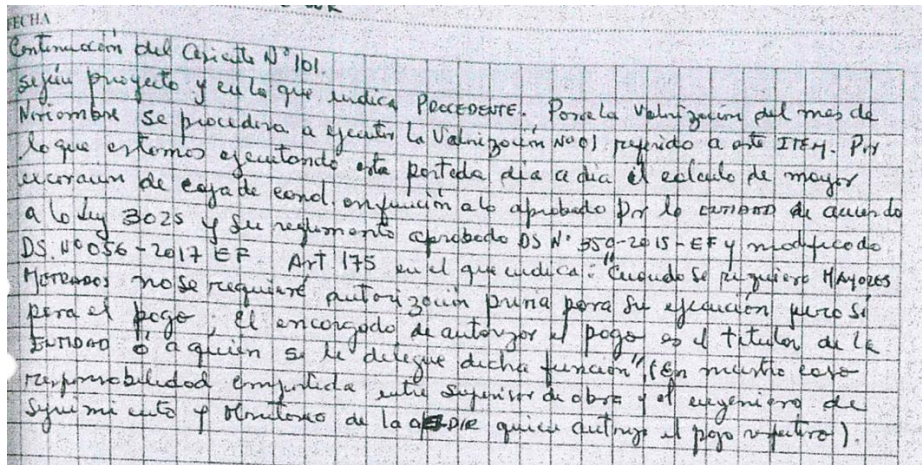 FECHA
Continuación del Asiento N° 101.
según proyecto y en la que indica PROCEDENTE. Para la Valorización del mes de
Noviembre se procedera a ejecutar la Valorización N° 01 referido a este ITEM. Por
lo que estamos ejecutando esta partida dia a dia el calculo de mayor
excavación de caja de canal en función a lo aprobado por la ENTIDAD de acuerdo
a la Ley 3025 y su reglamento aprobado DS N° 350-2015-EF y modificado
DS. N° 056-2017 EF. Art 175 en el que indica: "Cuando se requiera MAYORES
METRADOS no se requiere autorización previa para su ejecución pero si
para el pago, El encargado de autorizar el pago es el titular de la
ENTIDAD ó a quien se le delegue dicha función" (En nuestro caso
responsabilidad compartida entre supervisor de obra y el ingeniero de
Seguimiento y Monitoreo de la quien autoriza el pago respectivo).